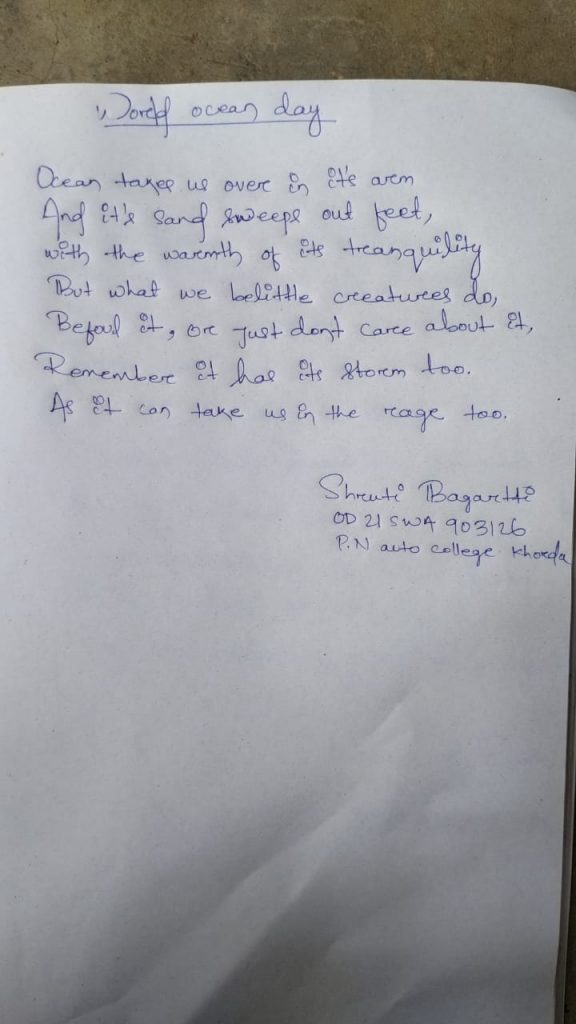 World ocean day
Ocean takes us over in it's arm
And it's sand sweeps out feet,
with the warmth of its tranquility
But what we belittle creatures do,
Befoul it, or just don't care about it,
Remember it has its storm too.
As it can take us in the rage too.
Shruti Bagartti
OD 21 SWA 903126
P.N auto college Khorda